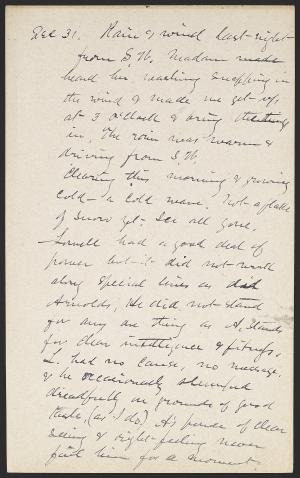 Dec 31. Rain & wind last night
from S.W. Madam made
heard her washing snapping in
the wind & made me get up
at 3 o'clock & bring the things
in. The rain was warm &
driving from S.W.
Clearing this morning & growing
cold - a cold wave. Not a flake
of snow yet. Ice all gone.
- Lowell had a good deal of
power but it did not work
along special lines as did
Arnolds, He did not stand
for any one thing as A. stands
for clear intelligence & fitness.
L. had no cause, no message,
& he occasionally slumped
dreadfully on grounds of good
taste, (as I do) A's power of clear
seeing & right feeling never
fail him for a moment.